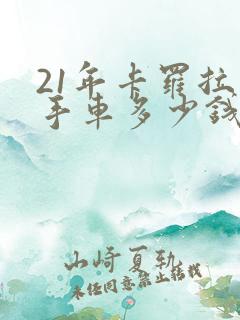 21年卡罗拉
手车多少钱
山崎夏勒
未经同意禁止转载